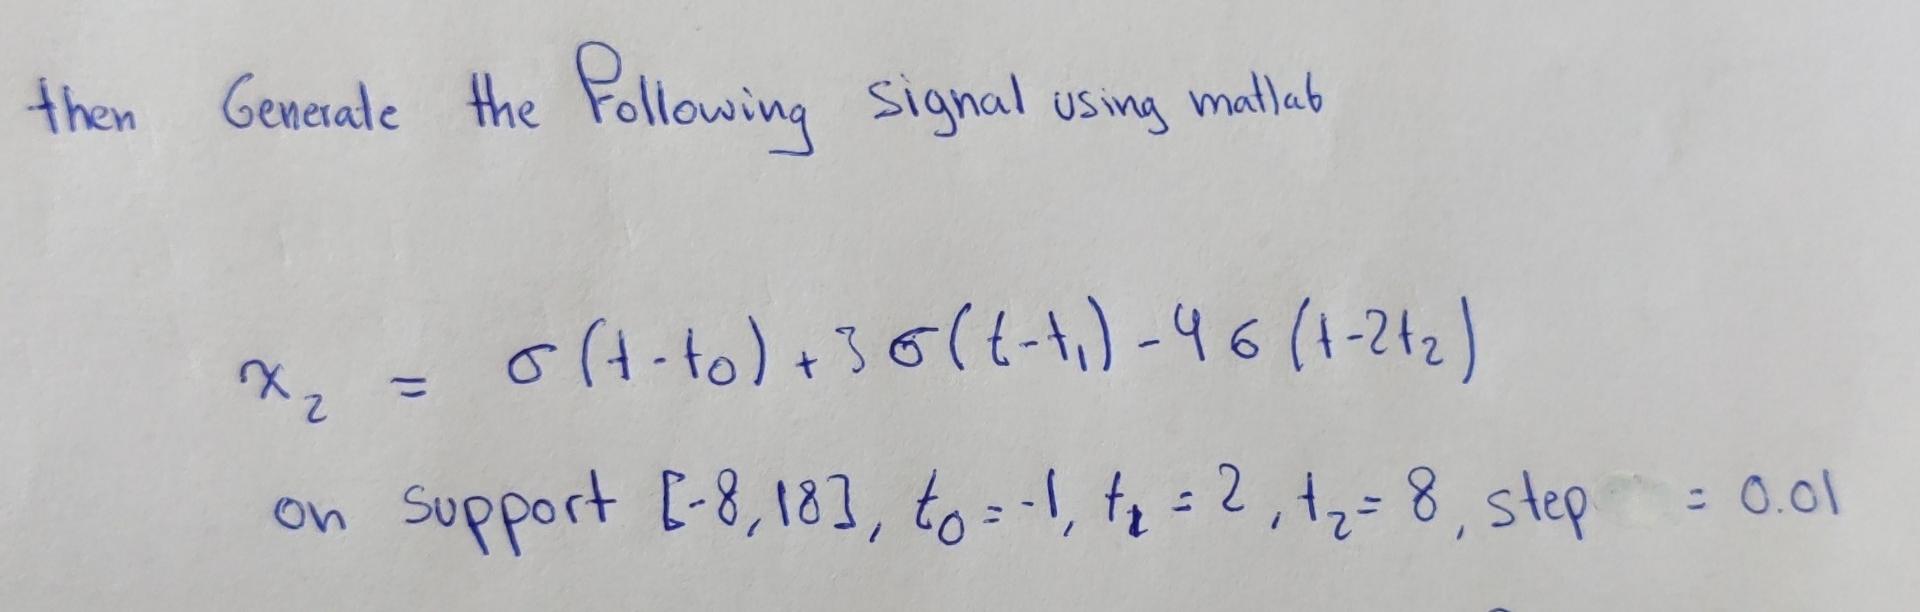 then Generate the Following signal using matlab
x₂ = σ(t-t₀) + 3σ(t-t₁) - 4σ(t-2t₂)
on support [-8,18], t₀=-1, t₁=2, t₂=8, step = 0.01